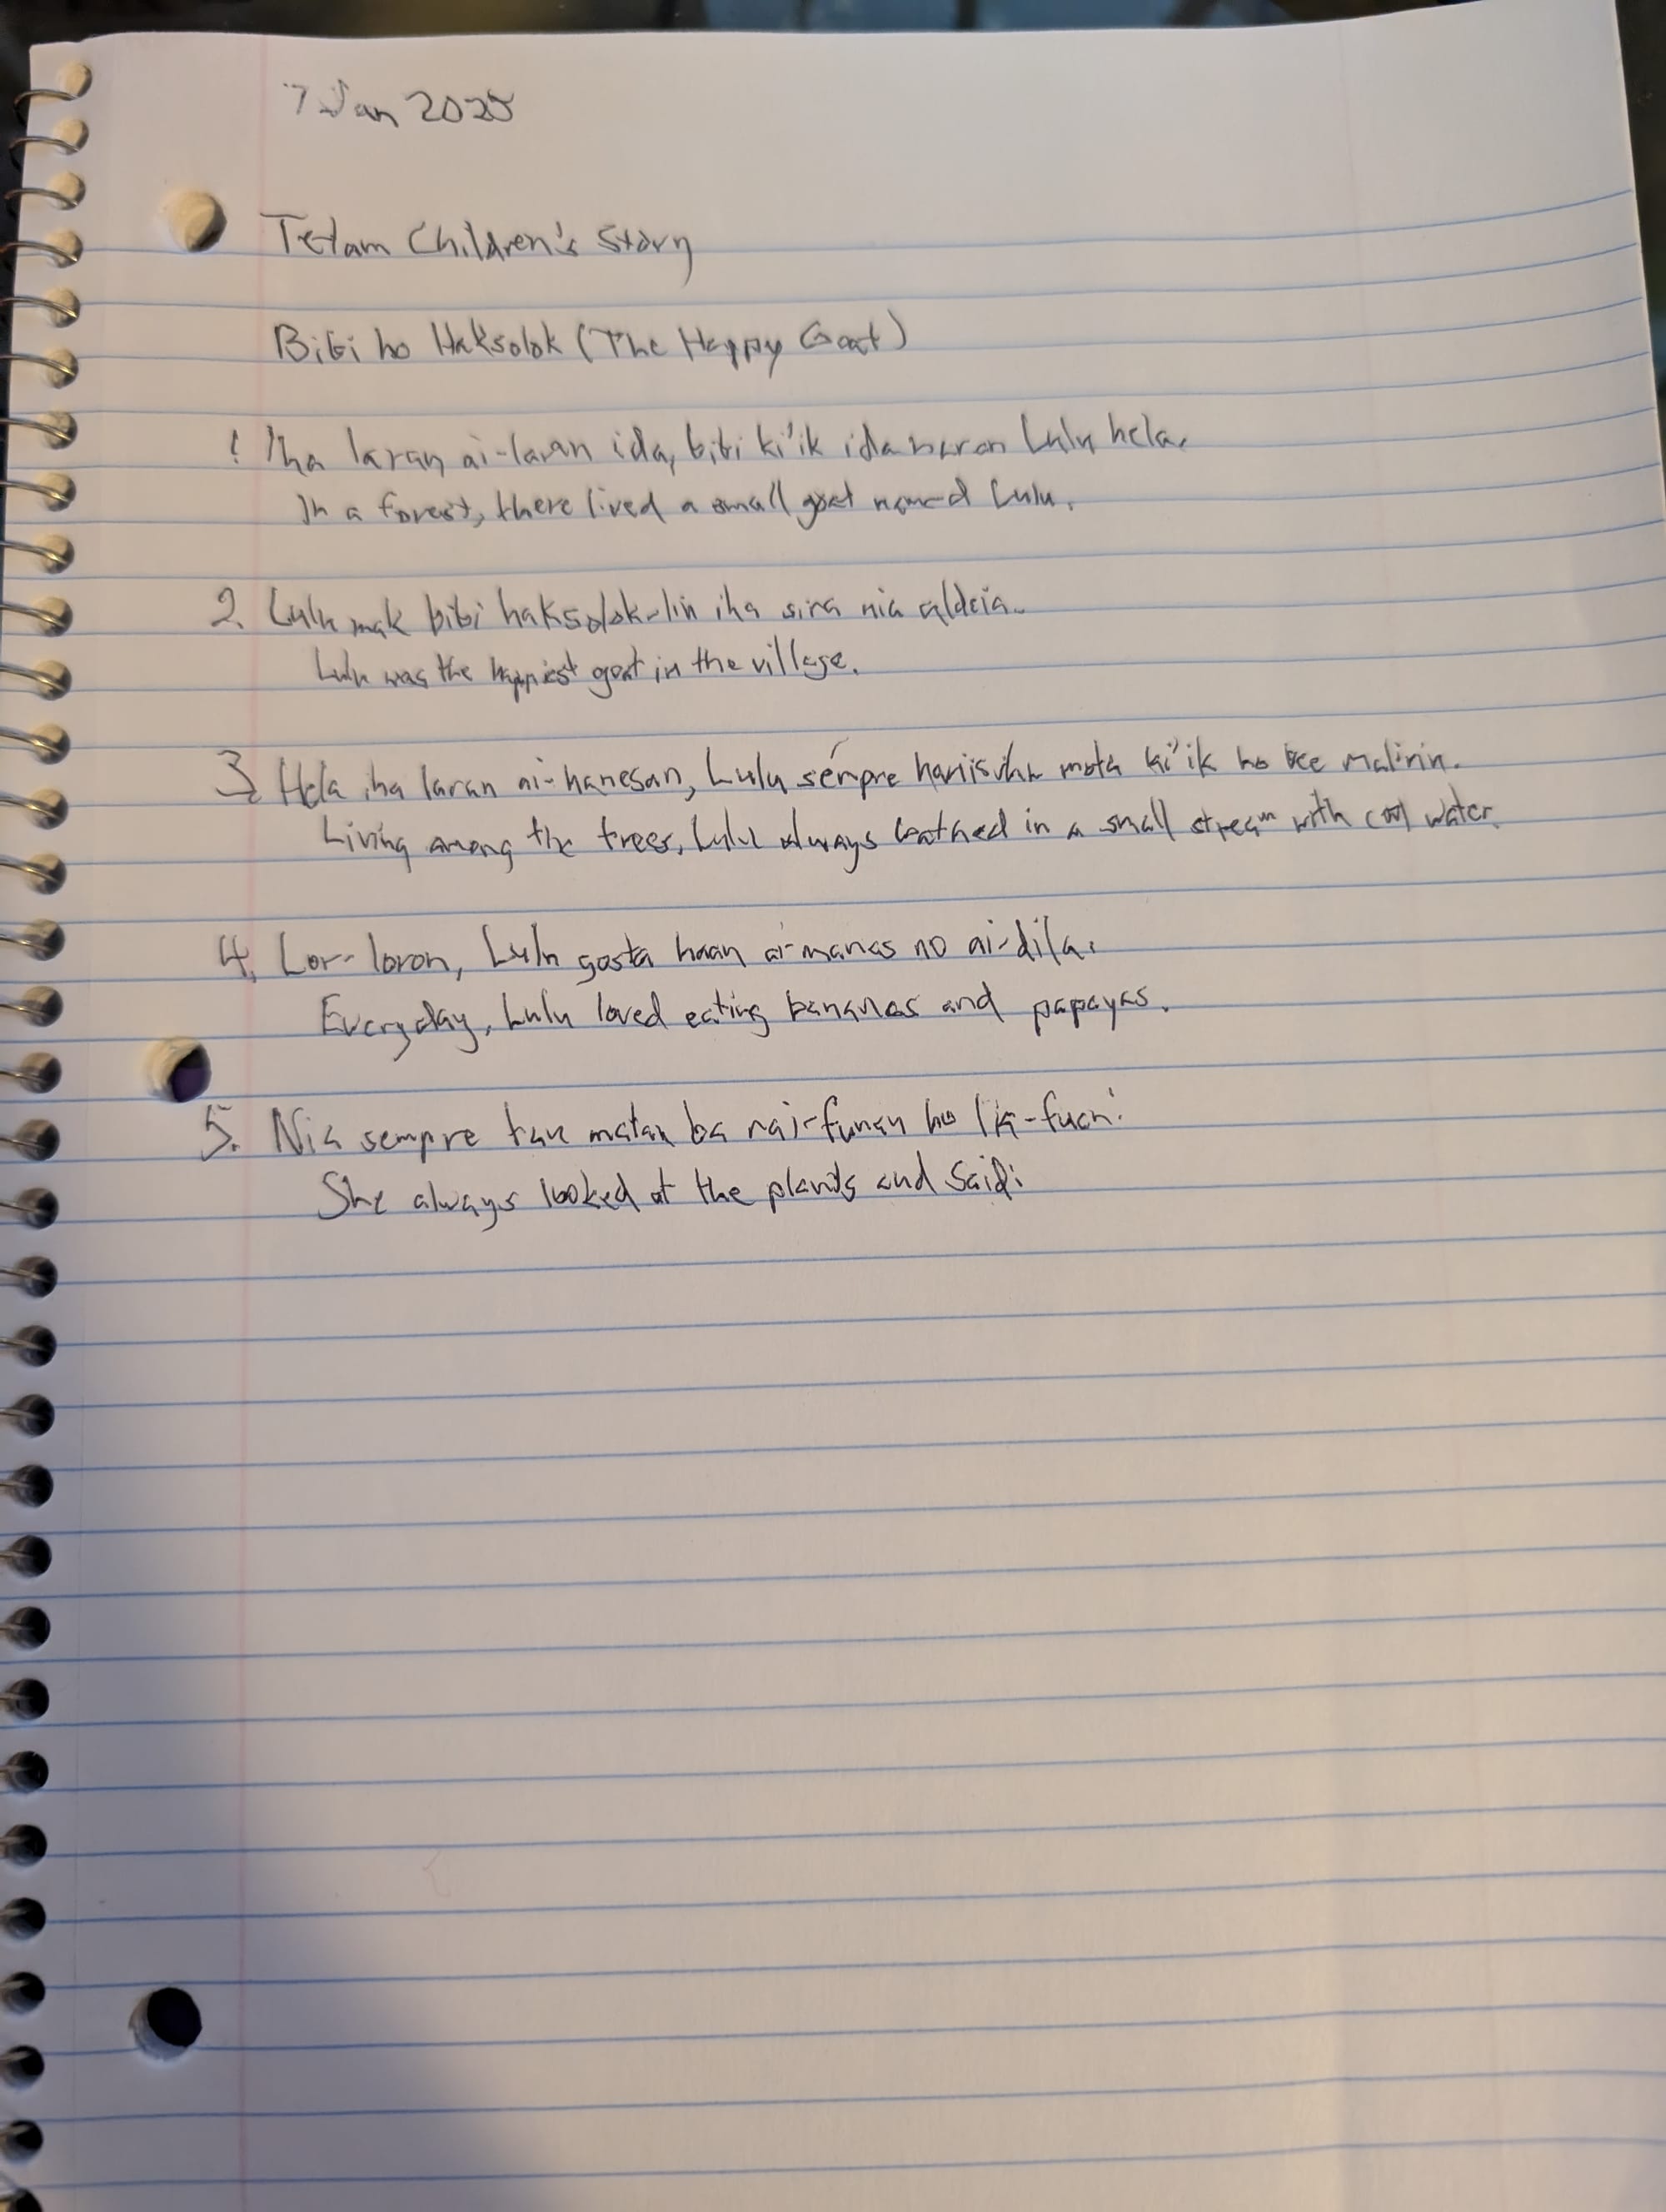 7 Jan 2025
Tetam Children's Story
Bibi ho Haksolok (The Happy Goat)
1 Iha laran ai-laran ida, bibi ki'ik ida naran Lulu hela.
In a forest, there lived a small goat named Lulu.
2. Lulu mak bibi haksolok-lin iha sira nia aldeia.
Lulu was the happiest goat in the village.
3. Hela iha laran ai-hanesan, Lulu sempre hariis mota ki'ik ho bee malirin.
Living among the trees, Lulu always bathed in a small stream with cool water.
4. Lor-loron, Lulu gosta haan ai-manas no ai-dila.
Everyday, Lulu loved eating bananas and papayas.
5. Nia sempre tau matan ba nai-funan ho lia-fuan:
She always looked at the plants and said: